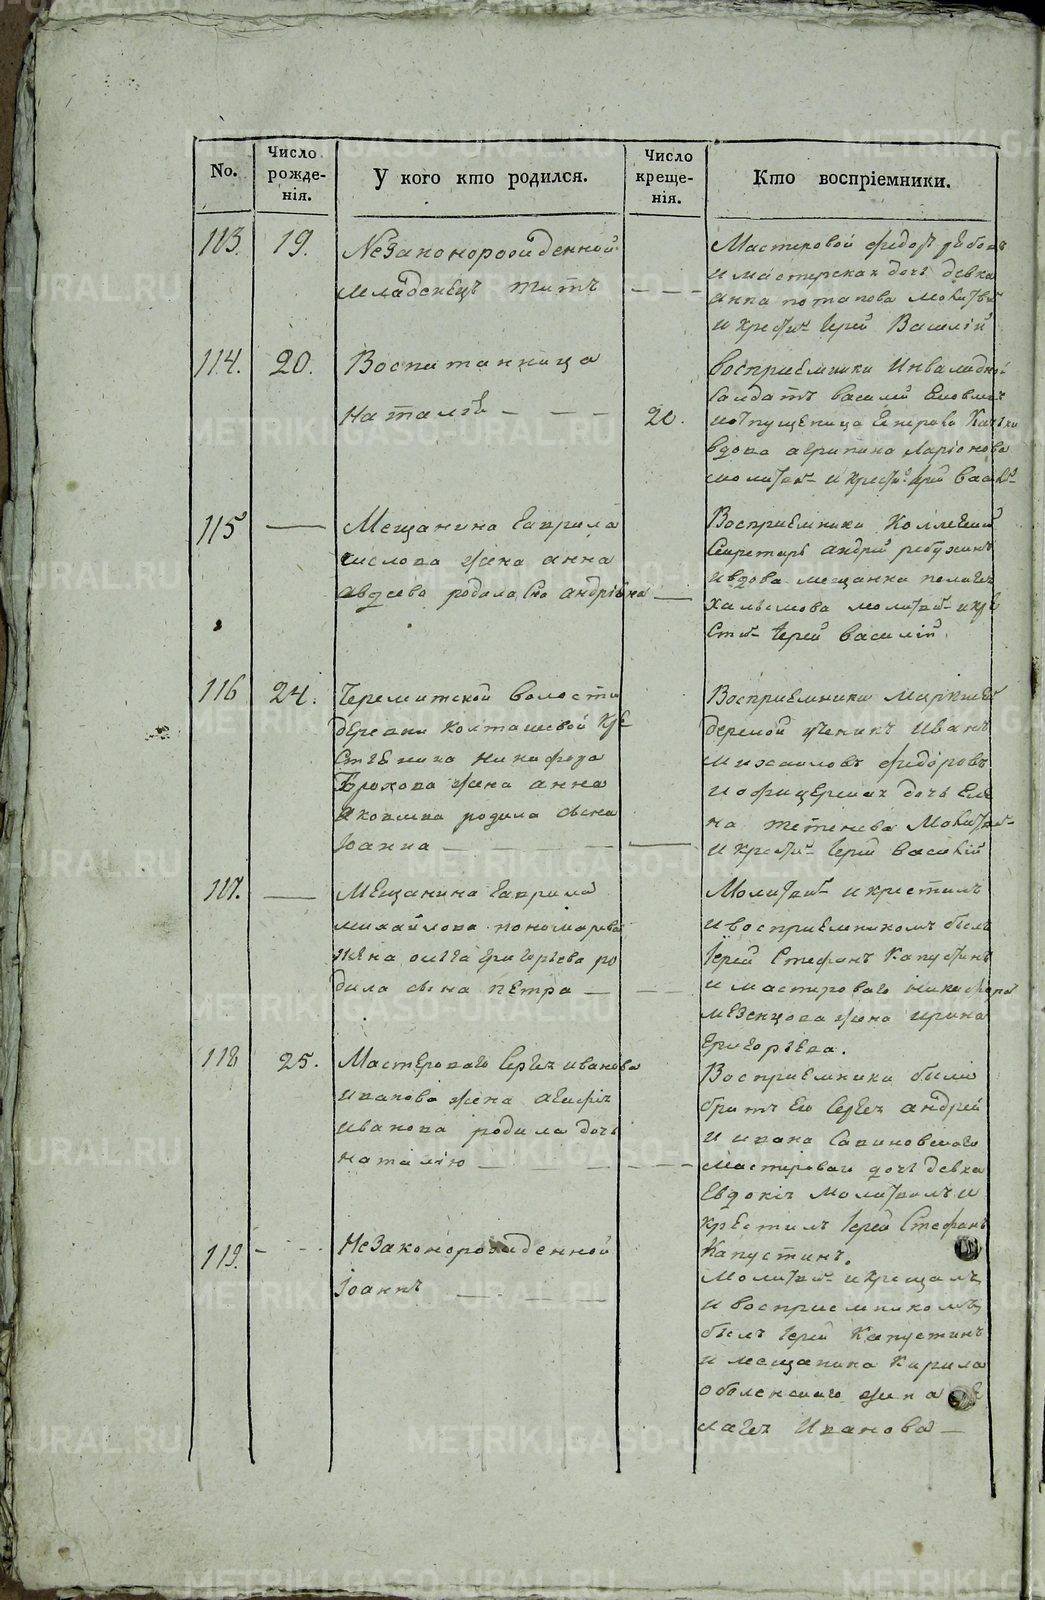 No.
Число рожденія.
У кого кто родился.
Число крещенія.
Кто воспріемники.
113.
19.
Незаконорожденной
младенецъ титъ
Мастеровой федотъ
и мастерская дочь девка
анна потапова молитви
и крести Іерей Василій
114.
20.
Воспитанница
Наталія
20.
восприемники Инвалидной
салдатъ василей
вдова агрипина Ларіонова
молитви и крести Іерей Васил
115
Мещанина Гаврила
жена анна
авдеева родила сна андріяна
Восприемники Коллежкий
Секретарь андрей
и вдова мещанка пелагея
молитви и кре
сти Іерей василій.
116
24.
волости
деревни Колташевой кре
стьенина Никифора
жена анна
яковлева родила сына
Іоанна
Восприемники
ученикъ Иванъ
михаиловъ федоровъ
и офицерская дочь Еле
на тетенева Молитви
и крести Іерей василій
117.
Мещанина Гаврила
михайлова пономарева
жена олга григорьева ро
дила сына петра
Молитви и крестилъ
и восприемникомъ былъ
Іерей Стефанъ Капустинъ
и мастероваго никифора
мезенцова жена ирина
григорьева.
118
25.
Мастероваго Сергея иванова
иванова жена агафия
иванова родила дочь
наталію
Восприемники были
братъ его Сергея андрей
и ивана Савиновскаго
мастероваго дочь девка
Евдокия Молитвилъ и
крестилъ Іерей Стефанъ
Капустинъ.
119.
Незаконорожденной
Іоаннъ
Молитви и крещалъ,
и восприемникомъ,
былъ Іерей Капустинъ
и мещанина Кирила
оболенскаго жена пе
лагея Иванова